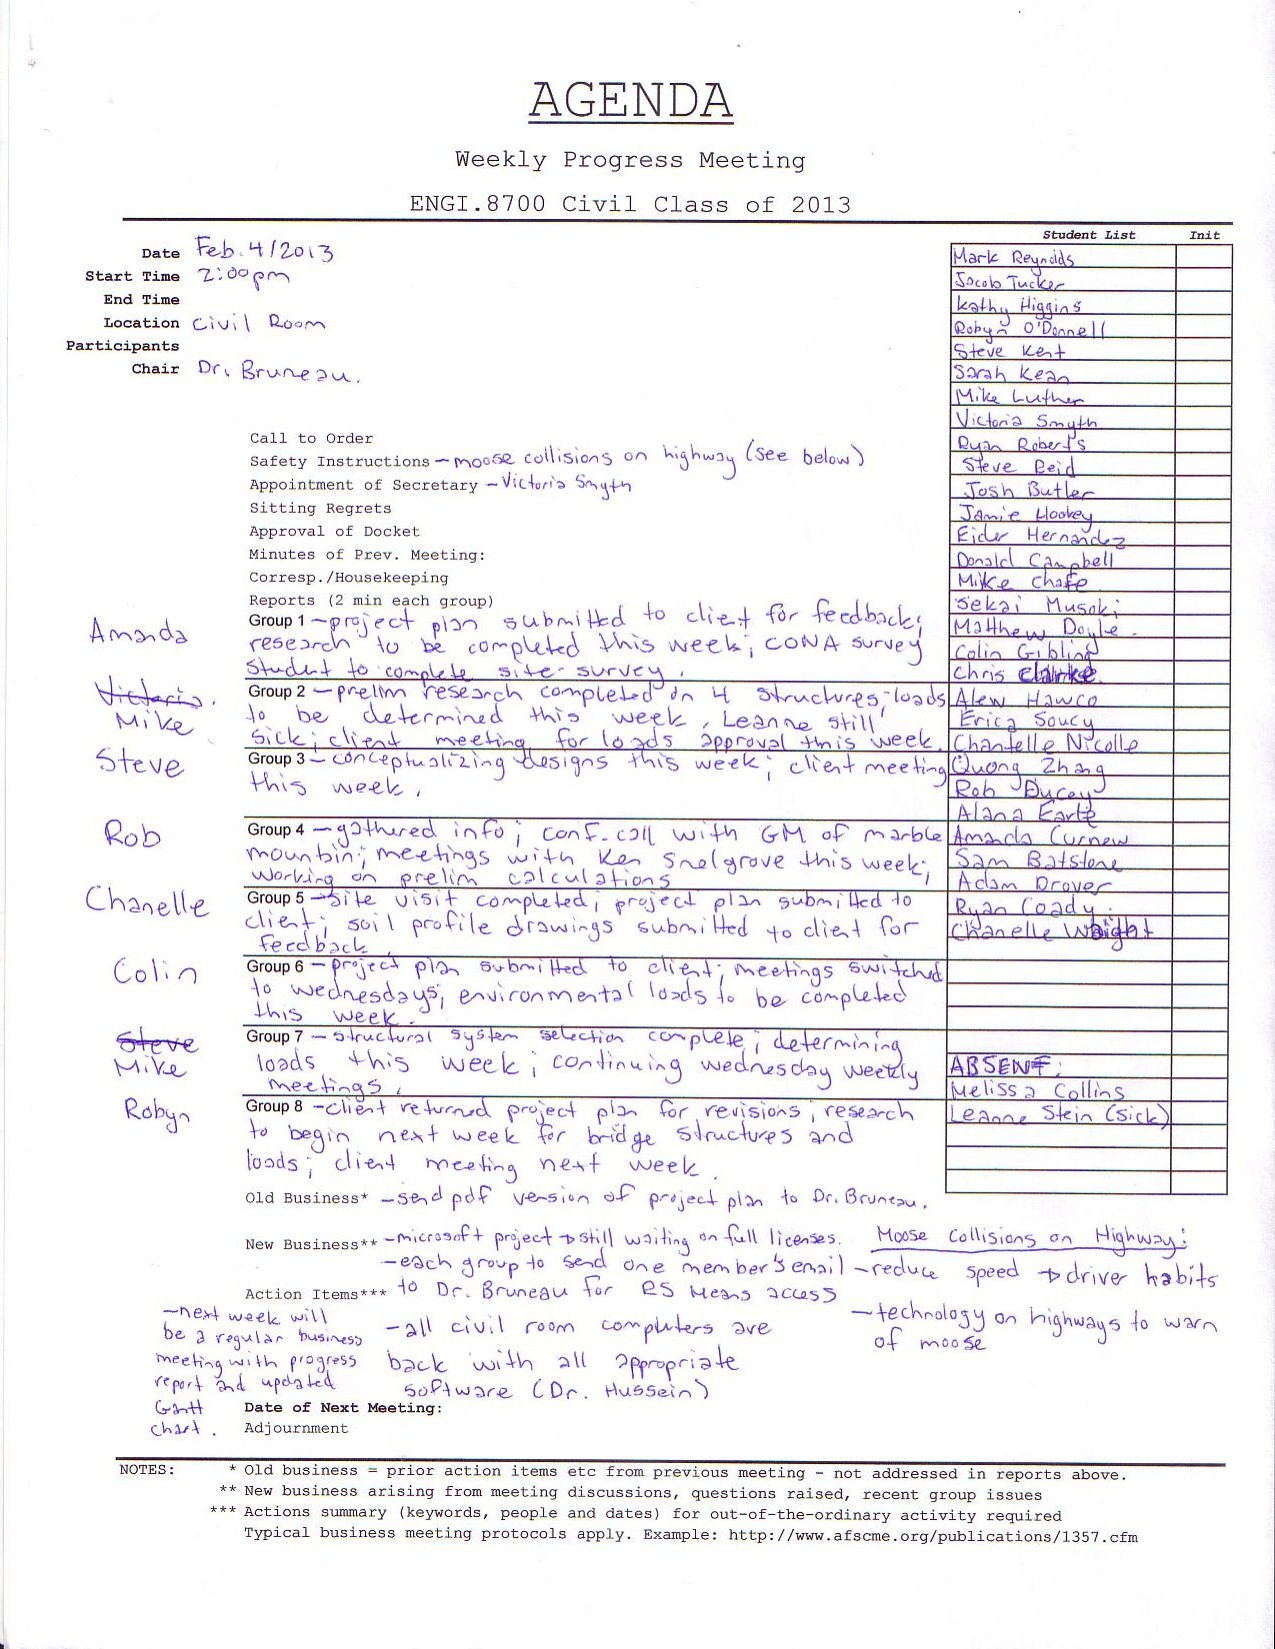 AGENDA
Weekly Progress Meeting
ENGI.8700 Civil Class of 2013
Date Feb. 4/2013
Start Time 2:00pm
End Time
Location Civil Room
Participants
Chair Dr. Bruneau.
Student List Init
Mark Reynolds
Jacob Tucker
Kathy Higgins
Robyn O'Donnell
Steve Kent
Sarah Kean
Mike Luther
Victoria Smyth
Ryan Roberts
Steve Reid
Josh Butler
Jamie Hookey
Eider Hernandez
Donald Campbell
Mike Chafe
Sekai Musoki
Matthew Doyle.
Colin Gibling
Chris Clarke
Alew Hawco
Erica Soucy
Chantelle Nicolle
Quong Zhang
Rob Ducey
Alana Earle
Amanda Curnew
Sam Batstone
Adam Drover
Ryan Coady.
Chanelle Wright
ABSENT:
Melissa Collins
Leanne Stein (sick)
Call to Order
Safety Instructions - moose collisions on highway (see below)
Appointment of Secretary - Victoria Smyth
Sitting Regrets
Approval of Docket
Minutes of Prev. Meeting:
Corresp./Housekeeping
Reports (2 min each group)
Amanda
Group 1 - project plan submitted to client for feedback;
research to be completed this week; CONA survey
student to complete site survey.
Victoria.
Mike
Group 2 - prelim research completed on 4 structures; loads
to be determined this week, Leanne still
sick; client meeting for loads approval this week.
Steve
Group 3 - conceptualizing designs this week; client meeting
this week.
Rob
Group 4 - gathered info; conf. call with GM of marble
mountain; meetings with Ken Snelgrove this week;
working on prelim calculations
Chanelle
Group 5 - site visit completed; project plan submitted to
client; soil profile drawings submitted to client for
feedback
Colin
Group 6 - project plan submitted to client; meetings switched
to Wednesdays; environmental loads to be completed
this week.
Steve
Mike
Group 7 - structural system selection complete; determining
loads this week; continuing wednesday weekly
meetings.
Robyn
Group 8 - client returned project plan for revisions; research
to begin next week for bridge structures and
loads; client meeting next week.
Old Business* - send pdf version of project plan to Dr. Bruneau.
New Business** - microsoft project → still waiting on full licenses.
- each group to send one member's email
to Dr. Bruneau for RS Means access
- all civil room computers are
back with all appropriate
software (Dr. Hussein)
Moose Collisions on Highway:
- reduce speed → driver habits
- technology on highways to warn
of moose
Action Items***
- next week will
be a regular business
meeting with progress
report and updated
Gantt
chart.
Date of Next Meeting:
Adjournment
NOTES: * Old business = prior action items etc from previous meeting - not addressed in reports above.
** New business arising from meeting discussions, questions raised, recent group issues
*** Actions summary (keywords, people and dates) for out-of-the-ordinary activity required
Typical business meeting protocols apply. Example: http://www.afscme.org/publications/1357.cfm